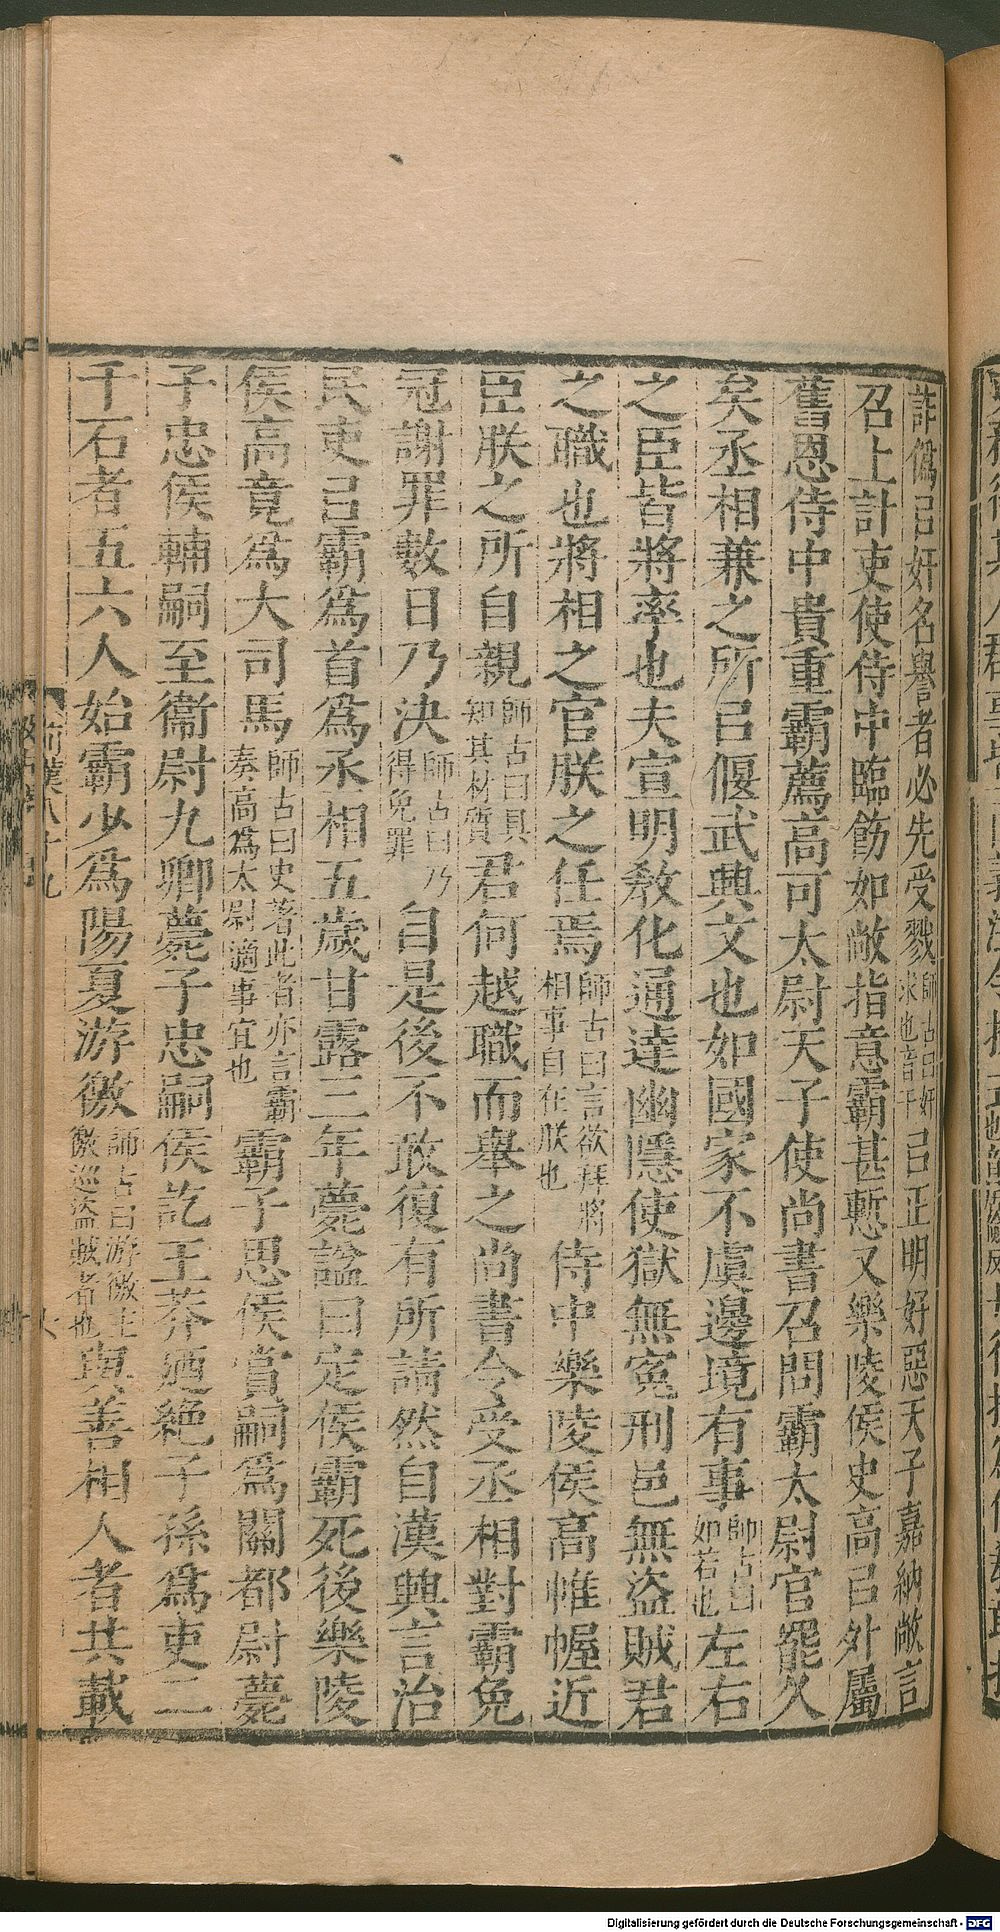 詐僞㠯奸名譽者必先受戮師古曰奸求也音干㠯正明好惡天子嘉納敞言
召上計吏使侍中臨飭如敞指意霸甚慙又樂陵侯史高㠯外屬
舊恩侍中貴重霸薦高可太尉天子使尚書召問霸太尉官罷久
矣丞相兼之所㠯偃武興文也如國家不虞邊境有事師古曰如若也左右
之臣皆將率也夫宣明敎化通達幽隱使獄無冤刑邑無盜賊君
之職也將相之官朕之任焉師古曰言欲拜將相事自在朕也侍中樂陵侯高帷幄近
臣朕之所自親師古曰具知其材質君何越職而舉之尚書令受丞相對霸免
冠謝罪數日乃決師古曰乃得免罪自是後不敢復有所請然自漢興言治
民吏㠯霸爲首爲丞相五歲甘露三年薨諡曰定侯霸死後樂陵
侯高竟爲大司馬師古曰史著此者亦言霸奏高爲太尉適事宜也霸子思侯賞嗣爲關都尉薨
子忠侯輔嗣至衞尉九卿薨子忠嗣侯訖王莽廼絶子孫爲吏二
千石者五六人始霸少爲陽夏游徼師古曰游徼主徼巡盜賊者也與善相人者共載
前漢八十九
Digitalisierung gefördert durch die Deutsche Forschungsgemeinschaft - DFG